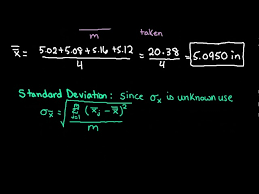 m taken
x̿ = (5.02+5.08+5.16+5.12)/4 = 20.38/4 = 5.0950 in
Standard Deviation: since σx is unknown use
σx̄ = √(Σj=1 (x̄j - x̿)²/m)